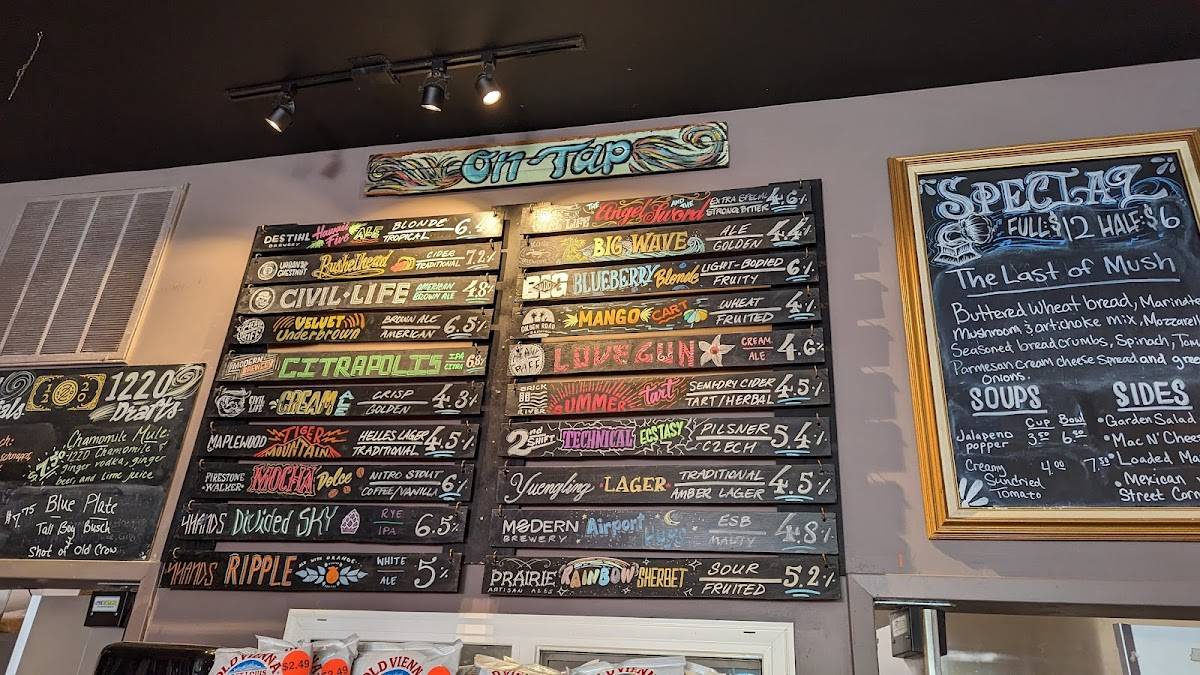 On-Tap
DESTIHL BREWERY Hawaii Five ALE BLONDE TROPICAL
URBAN CHESTNUT Bushelhead CIDER TRADITIONAL 7.2%
CIVIL-LIFE AMERICAN BROWN ALE 4.8%
VELVET Underbrown BROWN ALE AMERICAN 6.5%
MODERN BREWERY CITRAPOLIS IPA CITRA 6.8%
CIVIL LIFE CREAM ALE CRISP GOLDEN 4.8%
MAPLEWOOD TIGER MOUNTAIN HELLES LAGER TRADITIONAL 4.5%
FIRESTONE WALKER MOCHA Dolce NITRO STOUT COFFEE/VANILLA 6%
4HANDS Divided SKY RYE IPA 6.5%
4HANDS RIPPLE WHITE ALE 5%
LIFE THE Angel AND THE Sword EXTRA SPECIAL STRONG BITTER 4.6%
BIG WAVE ALE GOLDEN 4.4%
BIG BLUEBERRY Blonde LIGHT-BODIED FRUITY 6%
GOLDEN ROAD MANGO CART WHEAT FRUITED 4%
LOVE GUN CREAM ALE 4.6%
BRICK RIVER SUMMER tart SEMI-DRY CIDER TART/HERBAL 4.5%
2nd SHIFT TECHNICAL ECSTASY PILSNER CZECH 5.4%
Yuengling LAGER TRADITIONAL AMBER LAGER 4.5%
MODERN BREWERY Airport Lugs ESB MALTY 4.8%
PRAIRIE ARTISAN ALES RAINBOW SHERBET SOUR FRUITED 5.2%
SPECIAL
FULL $12 HALF $6
The Last of Mush
Buttered Wheat bread,
Mushroom & artichoke mix,
Seasoned breadcrumbs, Spinach,
Parmesan cream cheese spread and
onions.
SOUPS
Cup Bowl
Jalapeno popper 3.50 6.50
Creamy Sundried Tomato 4.00 7.50
SIDES
•Garden Salad
•Mac N'
•Loaded
•Mexican Street
12 20
1220 Drafts
Chamomile Mule:
1220 Chamomile
ginger vodka, ginger
beer, and lime juice
Blue Plate
$7.75
Tall Boy Busch
&
Shot of Old Crow
OLD VIENNA
$2.49
$2.49
OLD VIENNA
VIENNA